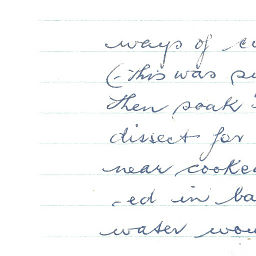 ways of
(-this was
then soak
dissect for
near cooked
-ed in
water